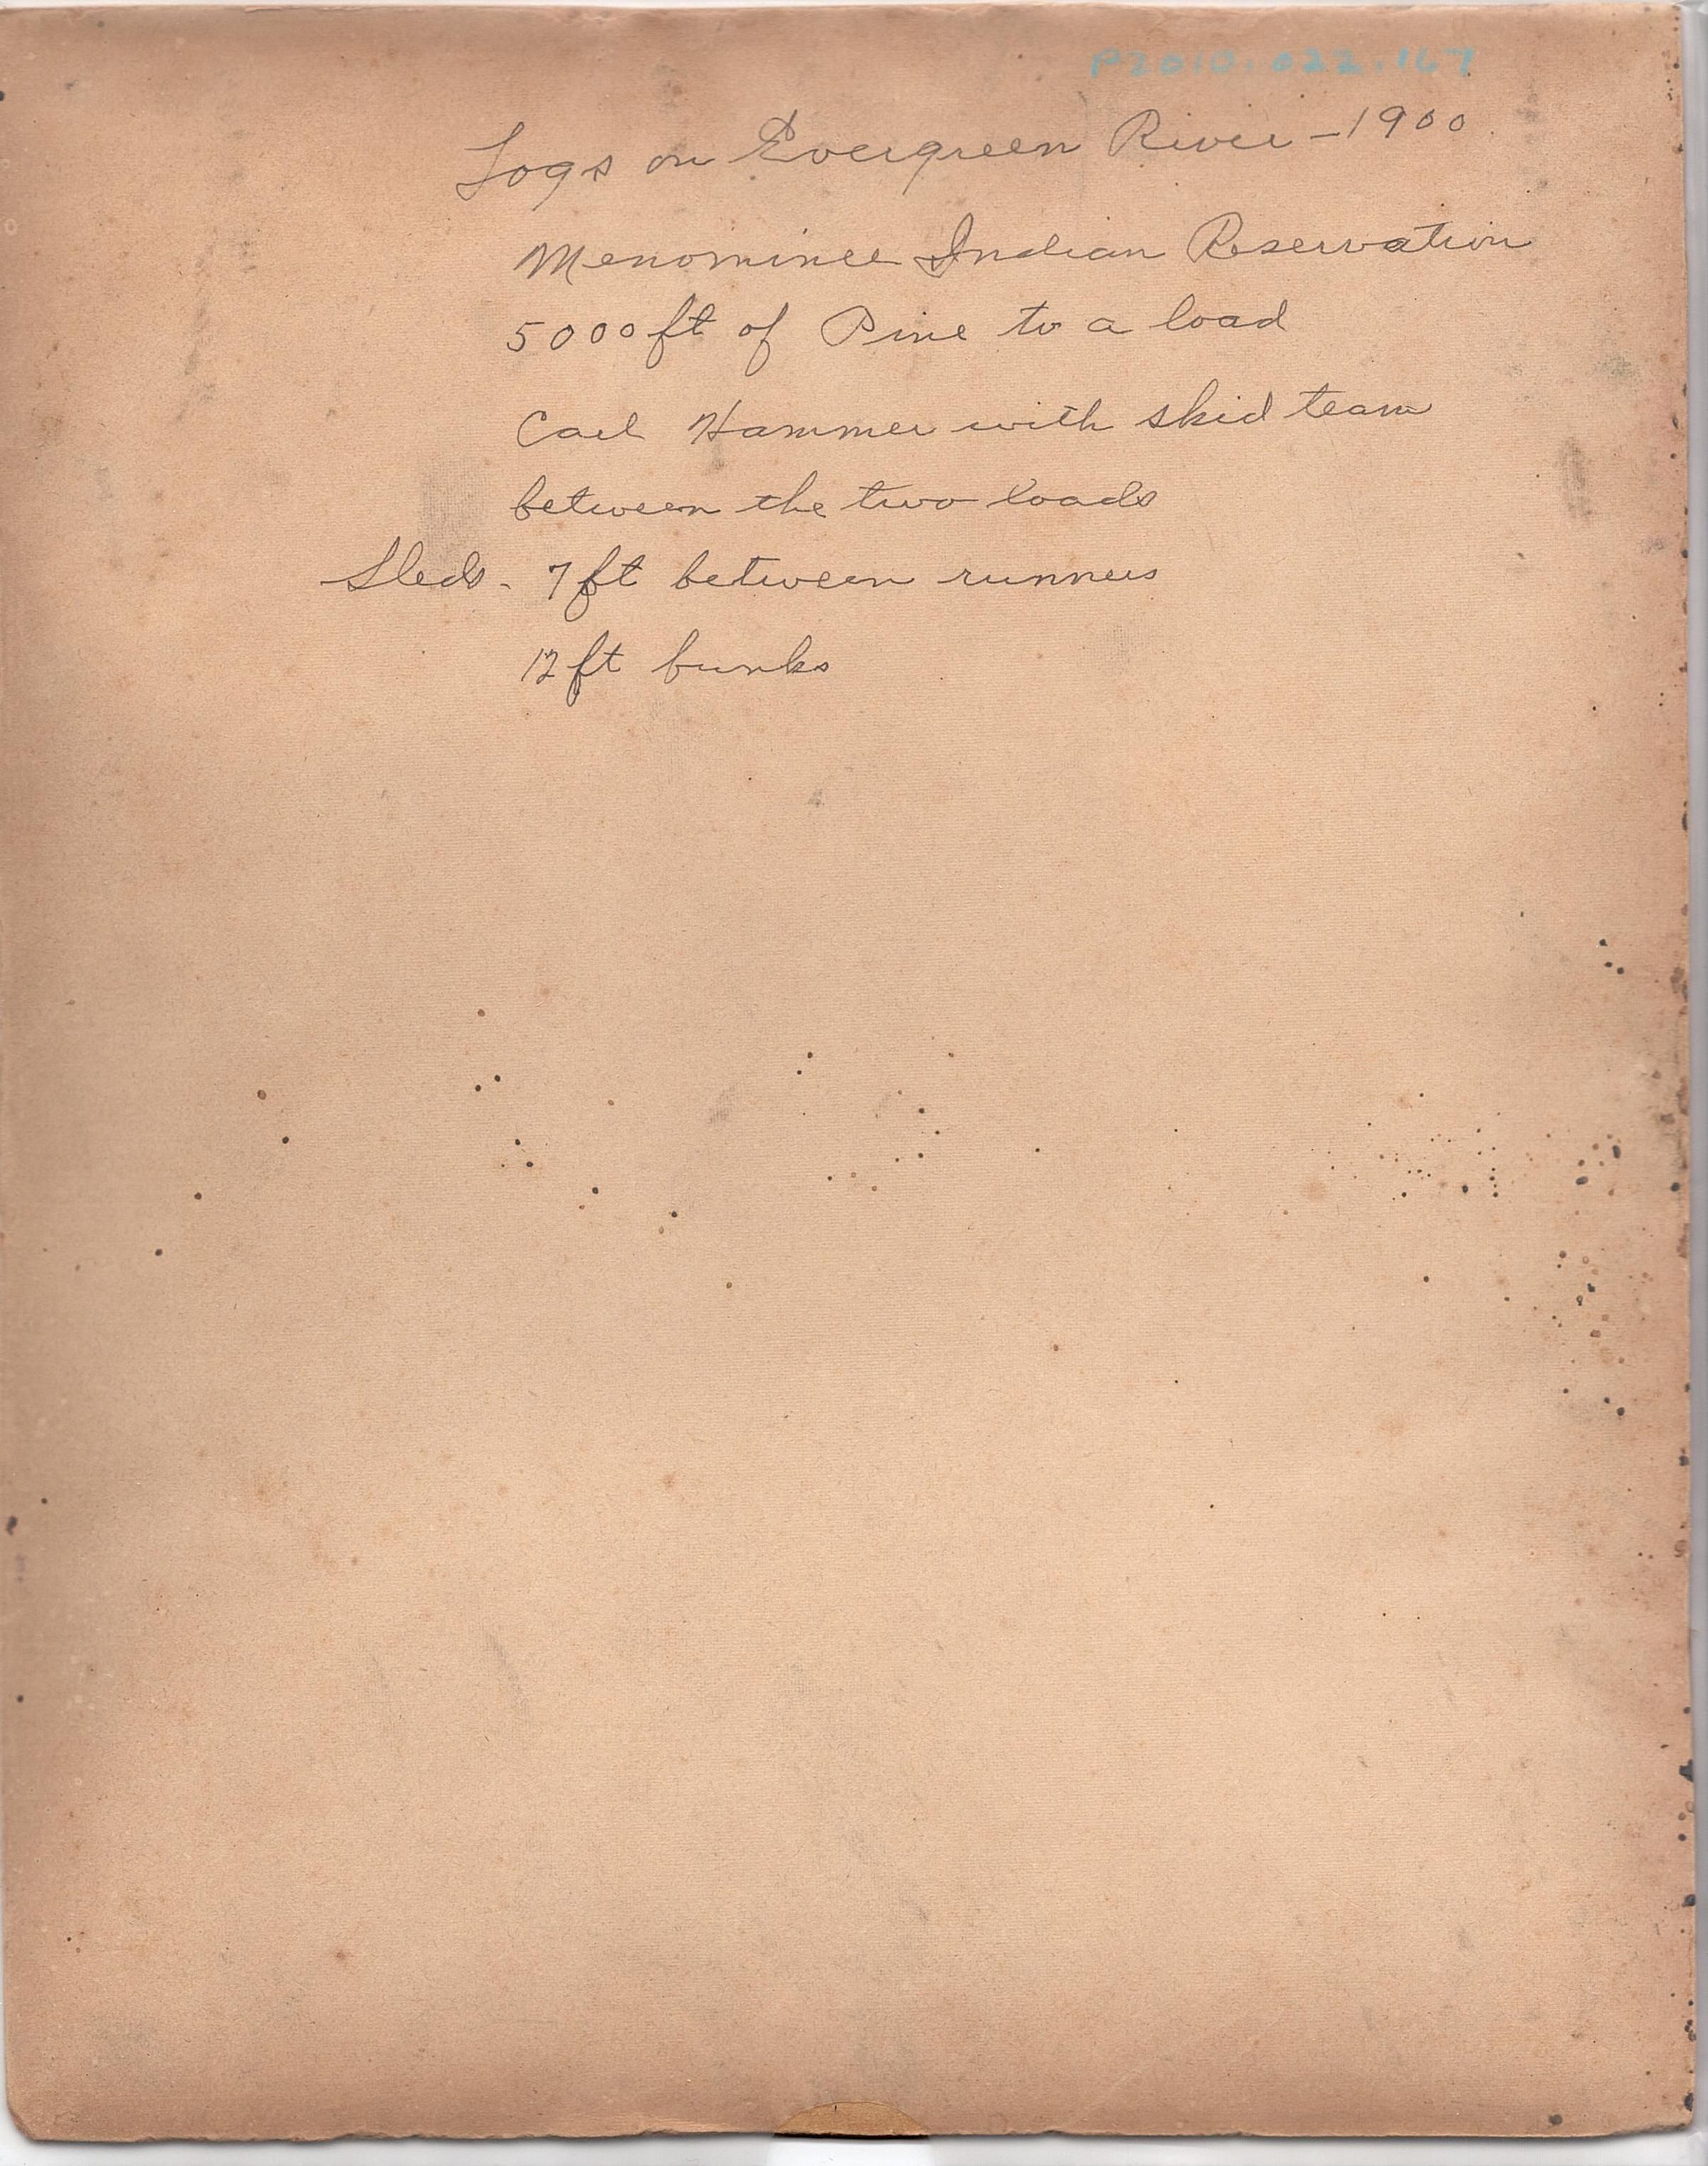 P2010.022.167
Logs on Evergreen River - 1900
Menominee Indian Reservation
5000 ft of Pine to a load
Carl Hammer with skid team
between the two loads
Sleds - 7 ft between runners
12 ft bunks